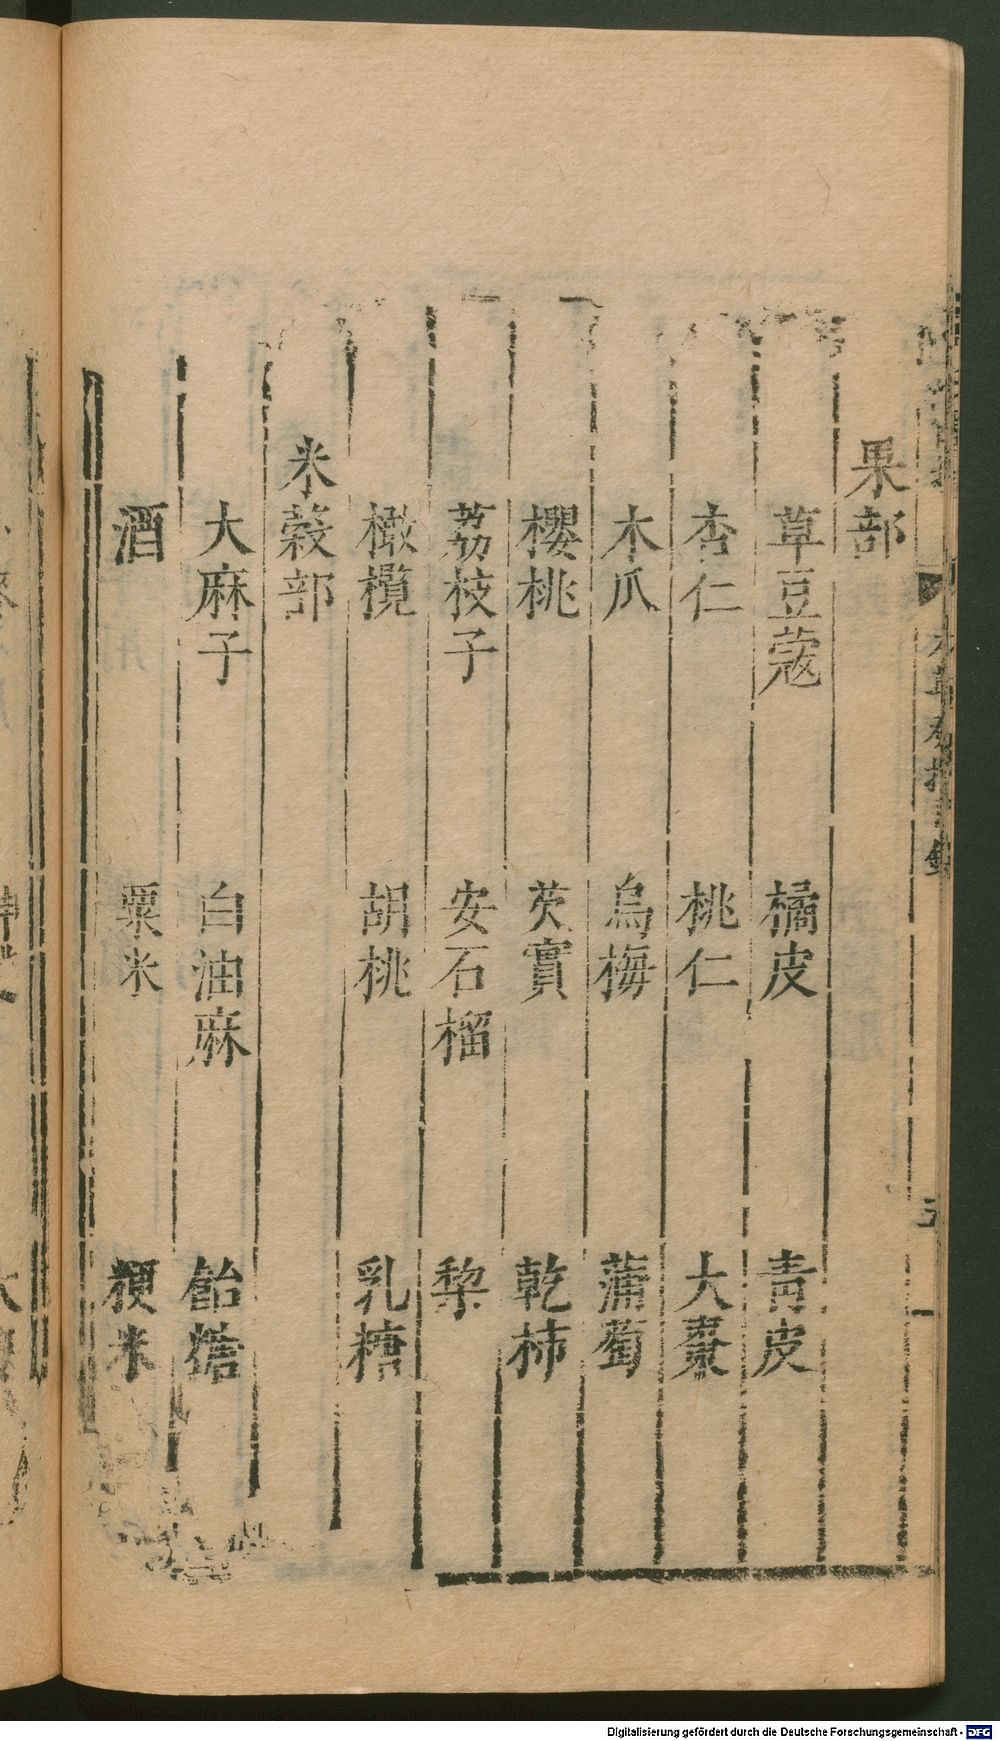 果部
草豆蔻　橘皮　青皮
杏仁　桃仁　大棗
木瓜　烏梅　蒲萄
櫻桃　芡實　乾柿
荔枝子　安石榴　梨
橄欖　胡桃　乳糖
米穀部
大麻子　白油麻　飴糖
酒　粟米　粳米
Digitalisierung gefördert durch die Deutsche Forschungsgemeinschaft - DFG